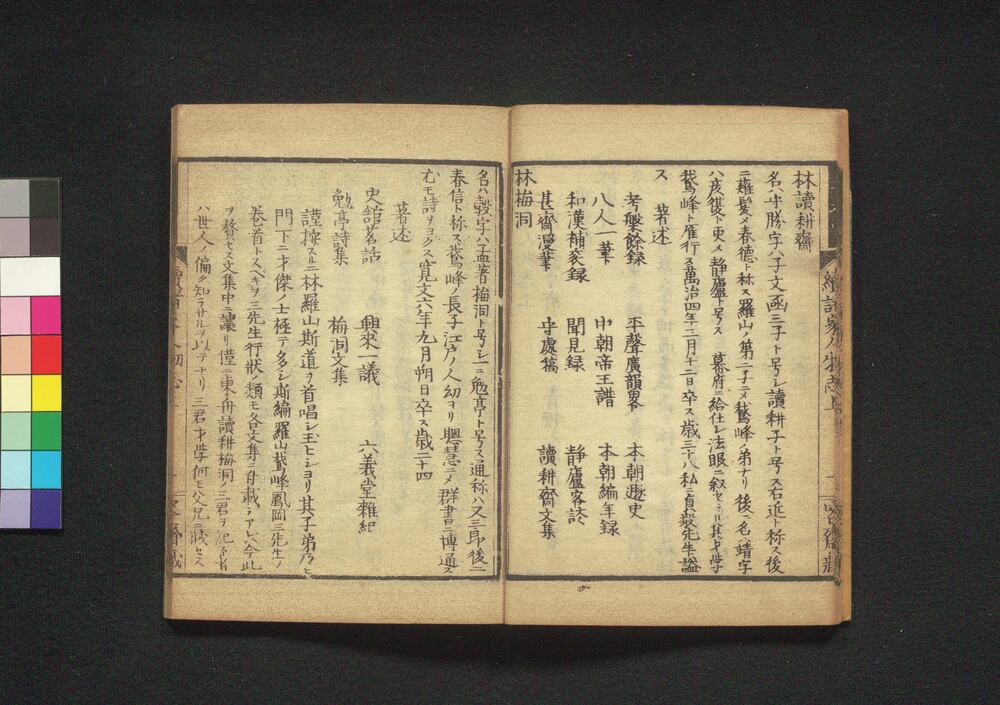 林讀耕齋
名ハ守勝字ハ子文函三子ト号シ讀耕子ト号ス右近ト称ス後
ニ薙髪シメ春德ト称ス羅山ノ第二子ニメ鵞峰ノ弟ナリ後ニ名ハ靖字
ハ彦復ト更メ静廬ト号ス幕府ニ給仕シ法眼ニ叙セラル其才学
鵞峰ト雁行ス萬治四年三月十二日卒ス歳三十八私ニ貞毅先生ト謚
ス 著述
考槃餘録 平聲廣韻畧 本朝遯史
八人一筆 中朝帝王譜 本朝編年録
和漢補袞録 聞見録 静廬客談
甚齋漫筆 守處稿 讀耕齋文集
林梅洞
名ハ毅字ハ孟著梅洞ト号シ一ニ勉亭ト号ス通称ハ又三郎後ニ
春信ト称ス鵞峰ノ長子江戸ノ人幼ヨリ聰慧ニメ群書ニ博通ス
尤モ詩ヲヨクス寛文六年九月朔日卒ス歳二十四
著述
史舘茗話 興來一議 六義堂雜紀
勉亭詩集 梅洞文集
謹按スルニ林羅山斯道ヲ首唱シ玉ヒシヨリ其子弟乃ヒ
門下ニ才傑ノ士極テ多シ斯編羅山鵞峰鳳岡三先生ノ
巻首トスベキヲ三先生行状ノ類モ各文集ニ毎載シアレハ今此
ヲ贅セス文集中ニ讓リ僅ニ東舟讀耕梅洞ノ三君ヲ記ス者
ハ世人ノ偏ク知ラサルヲ以テナリ三君才學何モ父兄ニ減セス